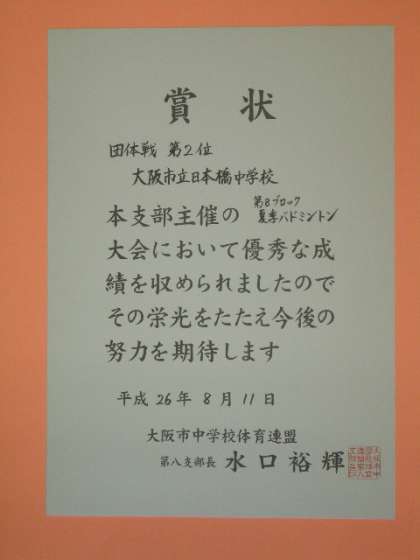 賞状
団体戦 第2位
大阪市立日本橋中学校
本支部主催の 第8ブロック 夏季バドミントン
大会において優秀な成
績を収められましたので
その栄光をたたえ今後の
努力を期待します
平成26年8月11日
大阪市中学校体育連盟
第八支部長 水口裕輝